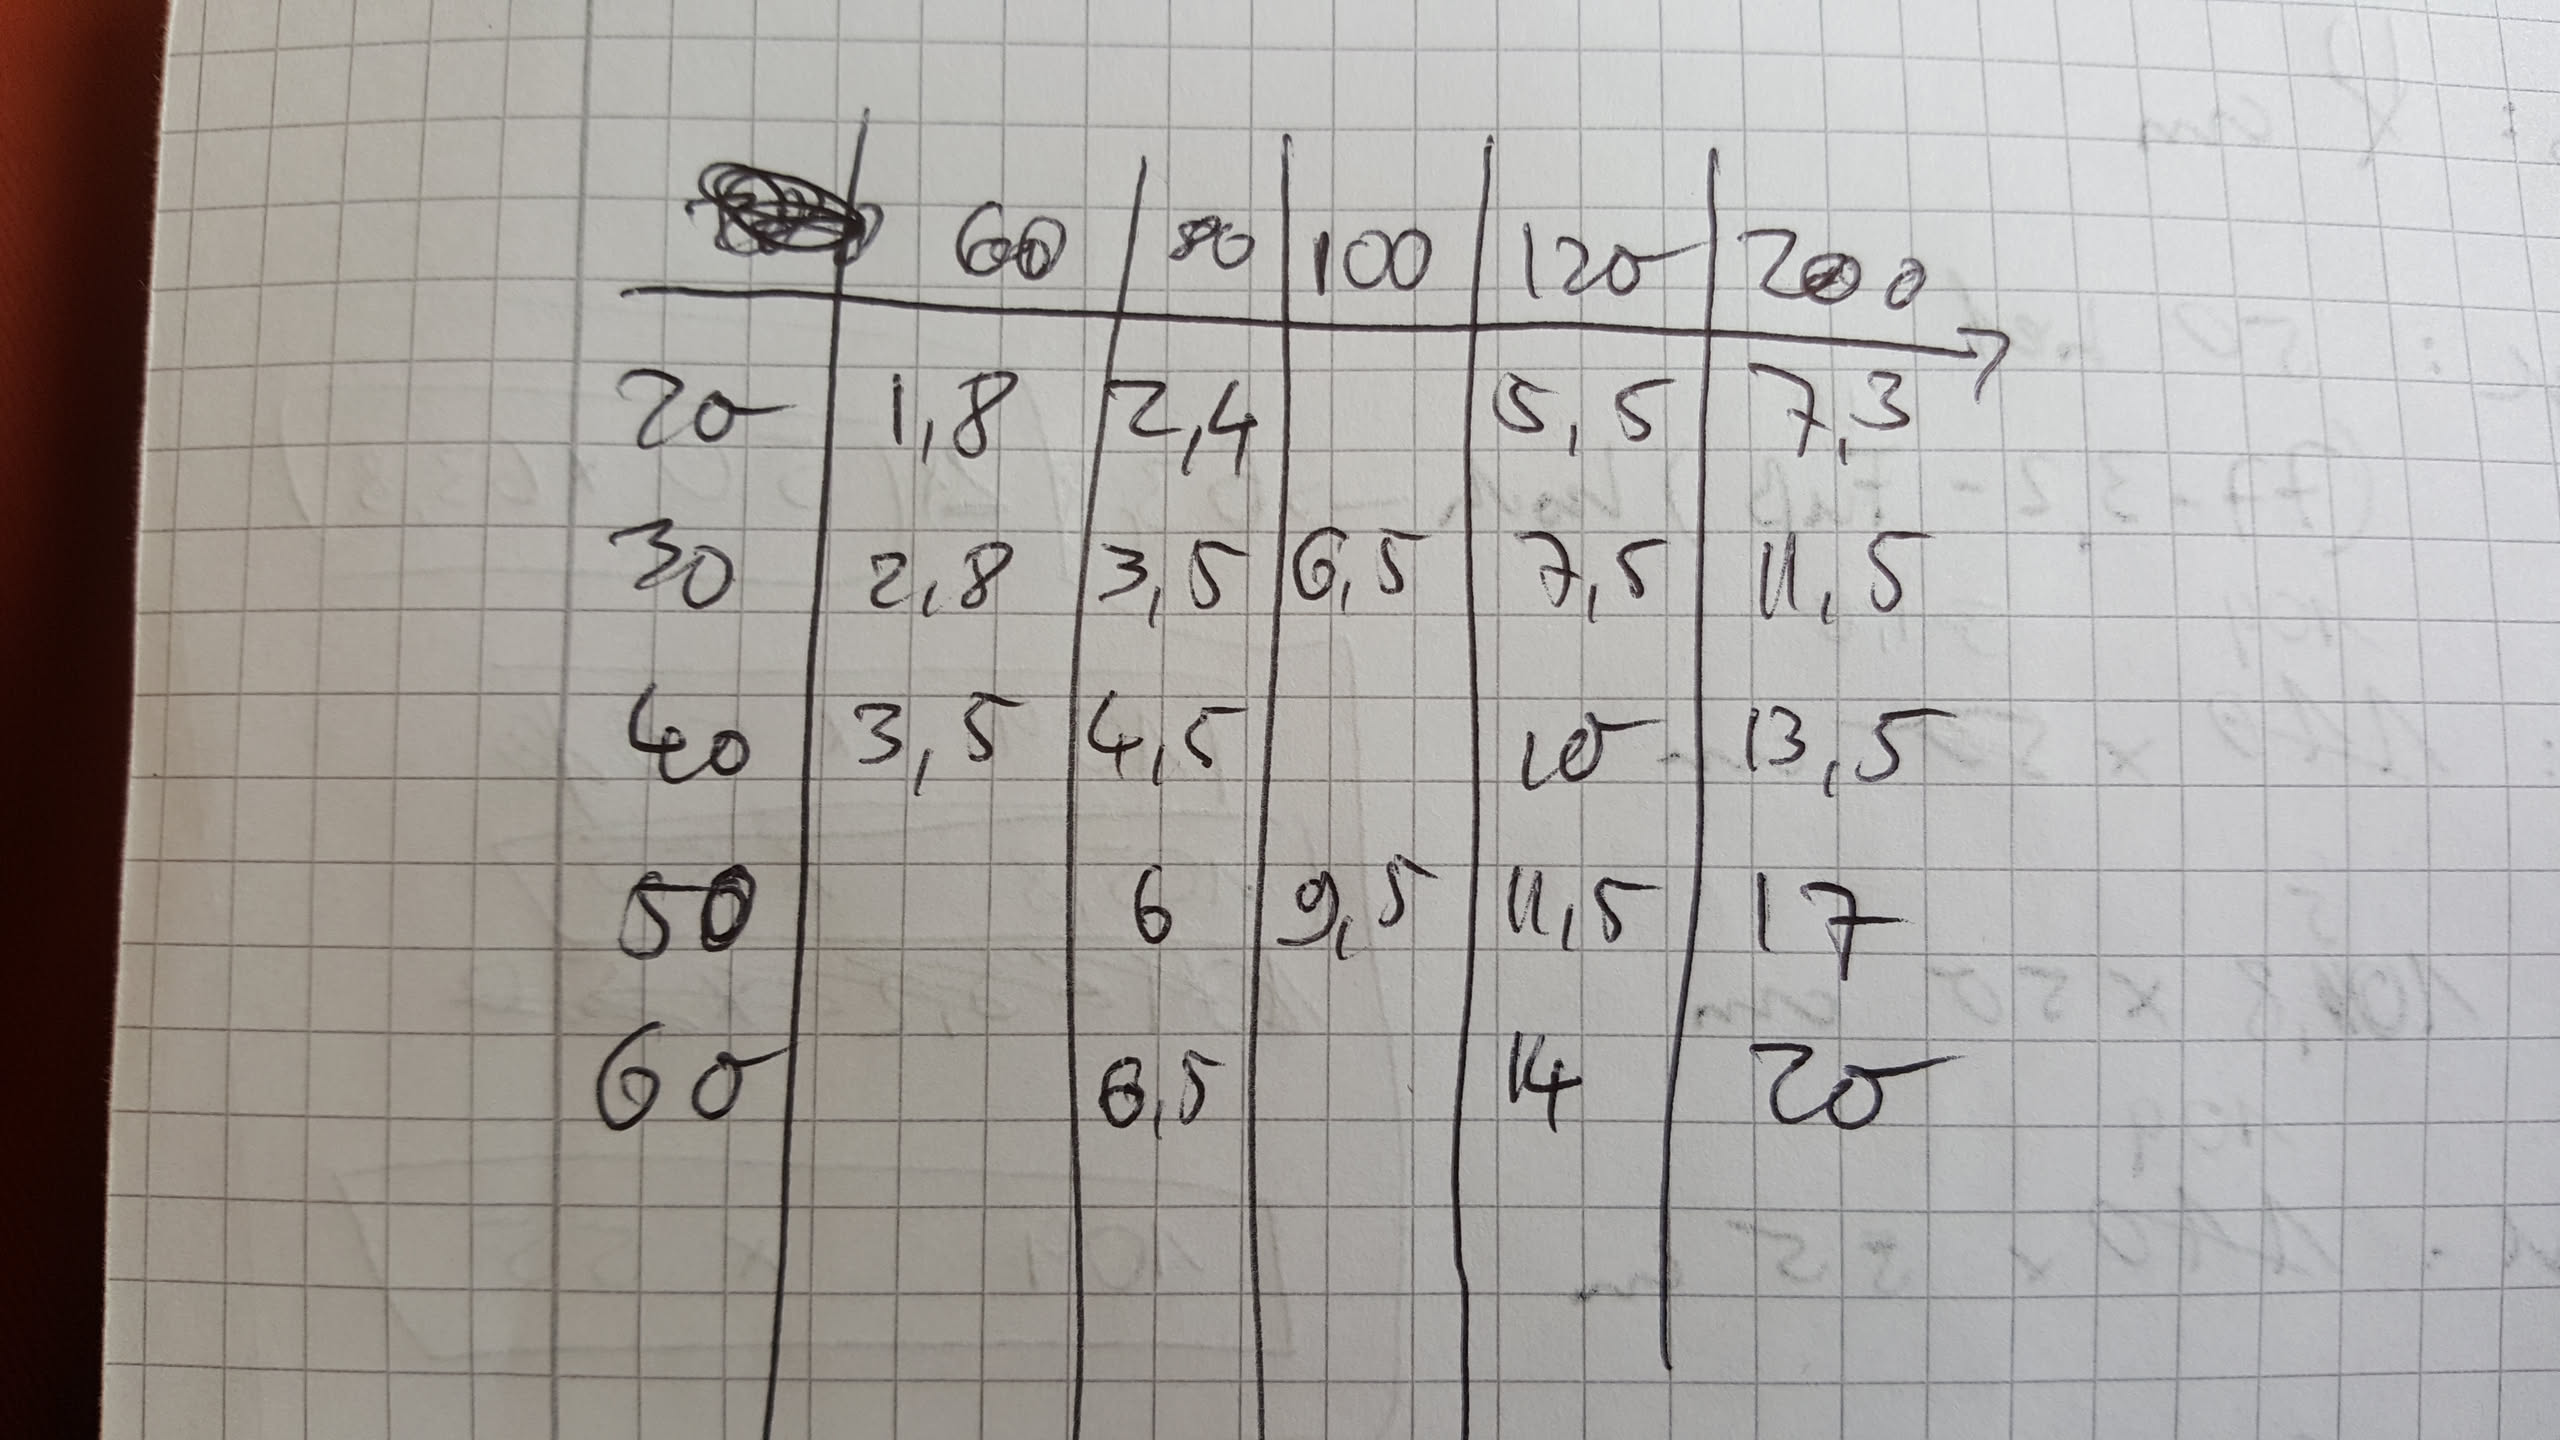 60 80 100 120 200
20 1,8 2,4 5,5 7,3
30 2,8 3,5 6,5 7,5 11,5
40 3,5 4,5 10 13,5
50 6 9,5 11,5 17
60 6,5 14 20